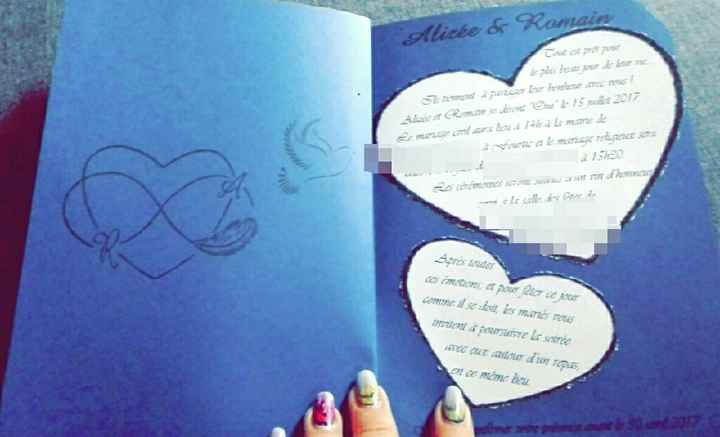 Alizée & Romain
Tout est prêt pour
le plus beau jour de leur vie...
Ils tiennent à partager leur bonheur avec vous !
Alizée et Romain se diront "Oui" le 15 juillet 2017
Le mariage civil aura lieu à 14h à la mairie de
à Fourtic et le mariage religieux sera
à 15h20.
Les cérémonies seront suivies d'un vin d'honneur
à la salle des fêtes de
Après toutes
ces émotions, et pour fêter ce jour
comme il se doit, les mariés vous
invitent à poursuivre la soirée
avec eux autour d'un repas,
en ce même lieu.
A
R
confirmer votre présence avant le 30 avril 2017